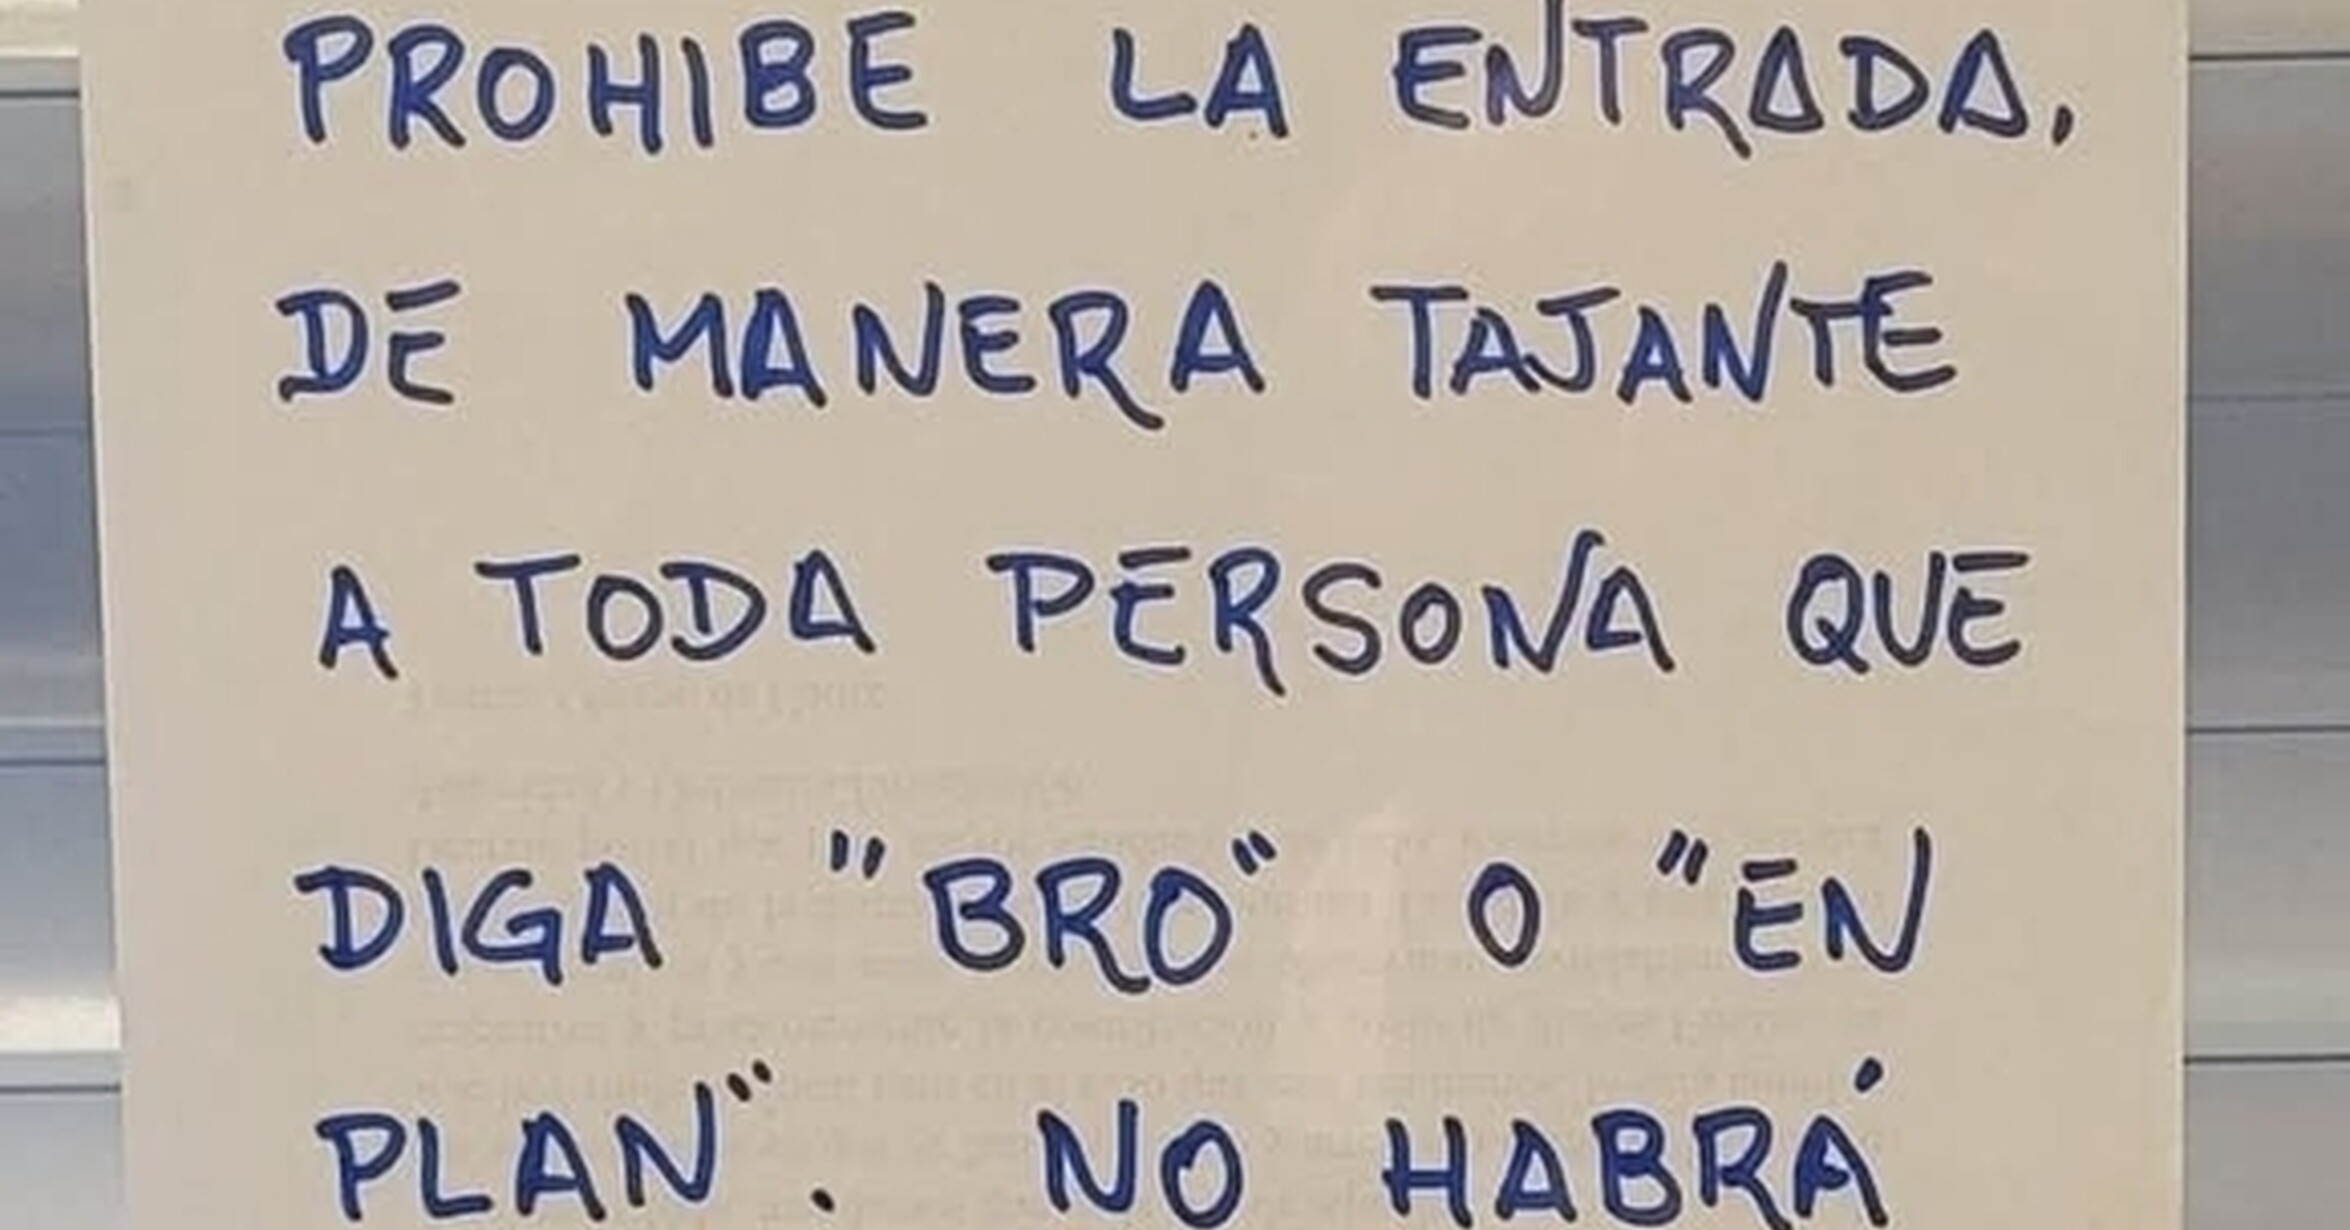 PROHIBE LA ENTRADA,
DE MANERA TAJANTE
A TODA PERSONA QUE
DIGA "BRO" O "EN
PLAN". NO HABRÁ